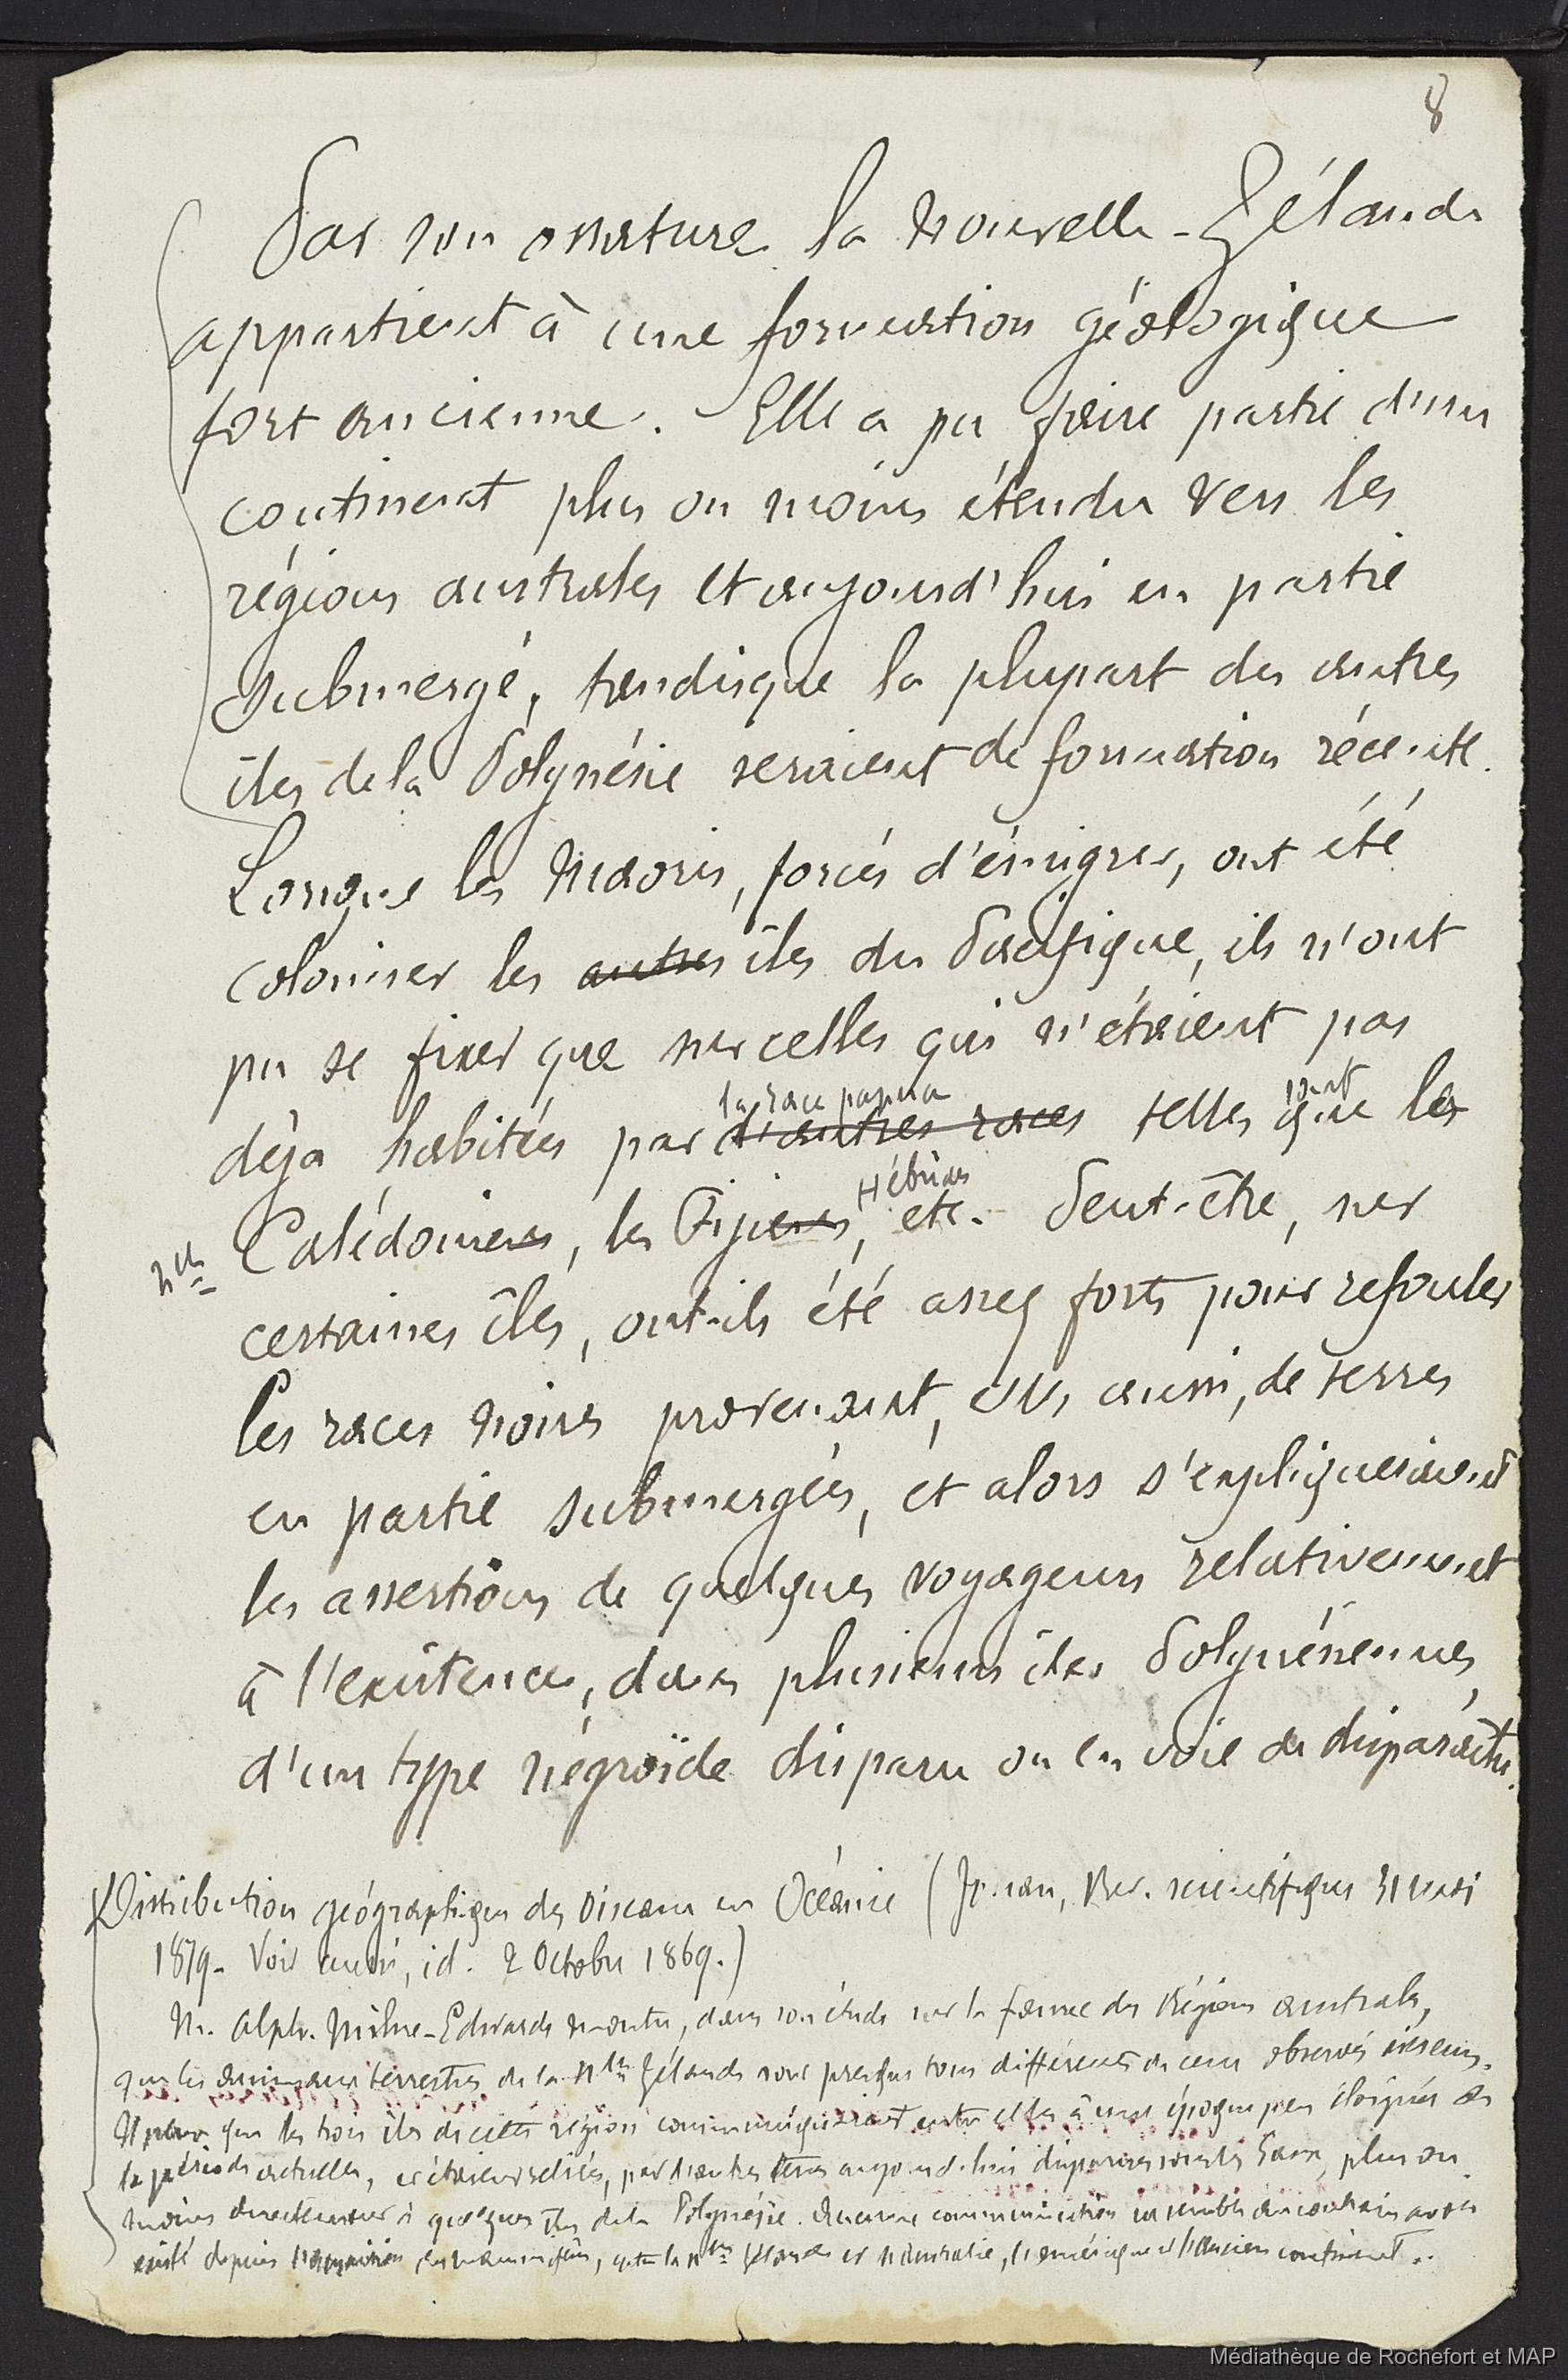 8
Par son ossature la Nouvelle-Zélande
appartient à une formation géologique
fort ancienne. Elle a pu faire partie d'un
continent plus ou moins étendu vers les
régions australes et aujourd'hui en partie
submergé, tandisque la plupart des autres
îles de la Polynésie seraient de formation récente.
Lorsque les Maoris, forcés d'émigrer, ont été
coloniser les autres îles du Pacifique, ils n'ont
pu se fixer que sur celles qui n'étaient pas
la race papua sont
déjà habitées par d'autres races telles que les
Hébrides
Nlle Calédoniens, les Fijiens, etc. Peut-être, sur
certaines îles, ont-ils été assez forts pour refouler
les races noires provenant, eux aussi, de terres
en partie submergées, et alors s'expliqueraient
les assertions de quelques voyageurs relativement
à l'existence, dans plusieurs îles Polynésiennes,
d'un type négroïde disparu ou en voie de disparaître.
Distribution géographique des Oiseaux en Océanie (Jouan, Rev. scientifique 31 mai
1879. Voir aussi, id. 2 Octobre 1869.)
M. Alph. Milne-Edwards montre, dans son étude sur la faune des Régions australes,
que les animaux terrestres de la Nlle Zélande sont presque tous différents de ceux observés
que les trois îles de cette région communiquaient entre elles à une époque peu éloignée de
la période actuelle, et étaient reliées, par d'autres terres aujourd'hui disparues sous les eaux, plus ou
moins directement à quelques îles de la Polynésie. Aucune communication ne semble au contraire avoir
existé depuis l'apparition des mammifères, entre la Nlle Zélande et l'Australie, l'Amérique et l'Ancien continent.
Médiathèque de Rochefort et MAP